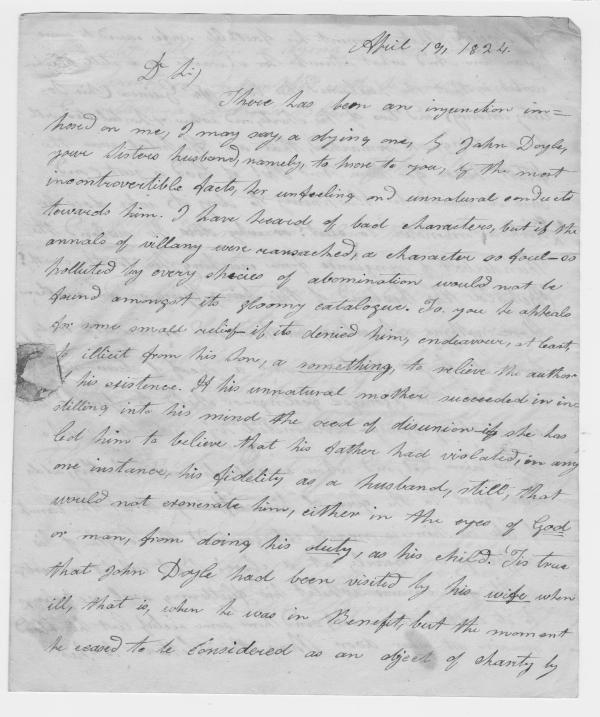 April 19, 1824.
Dr Sir,
There has been an injunction im=
posed on me, I may say, a dying one, by John Doyle,
your Sisters husband, namely, to prove to you, by the most
incontrovertible facts, her unfeeling and unnatural conduct
towards him. I have heard of bad characters, but if the
annals of villany were ransacked, a character so foul - so
polluted by every species of abomination would not be
found amongst its gloomy catalogue. To, you he appeals
for some small relief - if its denied him, endeavour, at least,
to illicit from his Son, a something, to relieve the author
of his existence. If his unnatural mother succeeded in in
stilling into his mind the seed of disunion - if she has
led him to believe that his father had violated, in any
one instance, his fidelity as a husband, still, that
would not exonerate him, either in the eyes of God
or man, from doing his duty, as his child. 'Tis true
that John Doyle had been visited by his wife when
ill, that is, when he was in Benefit, but the moment
he ceased to be Considered as an object of charity by